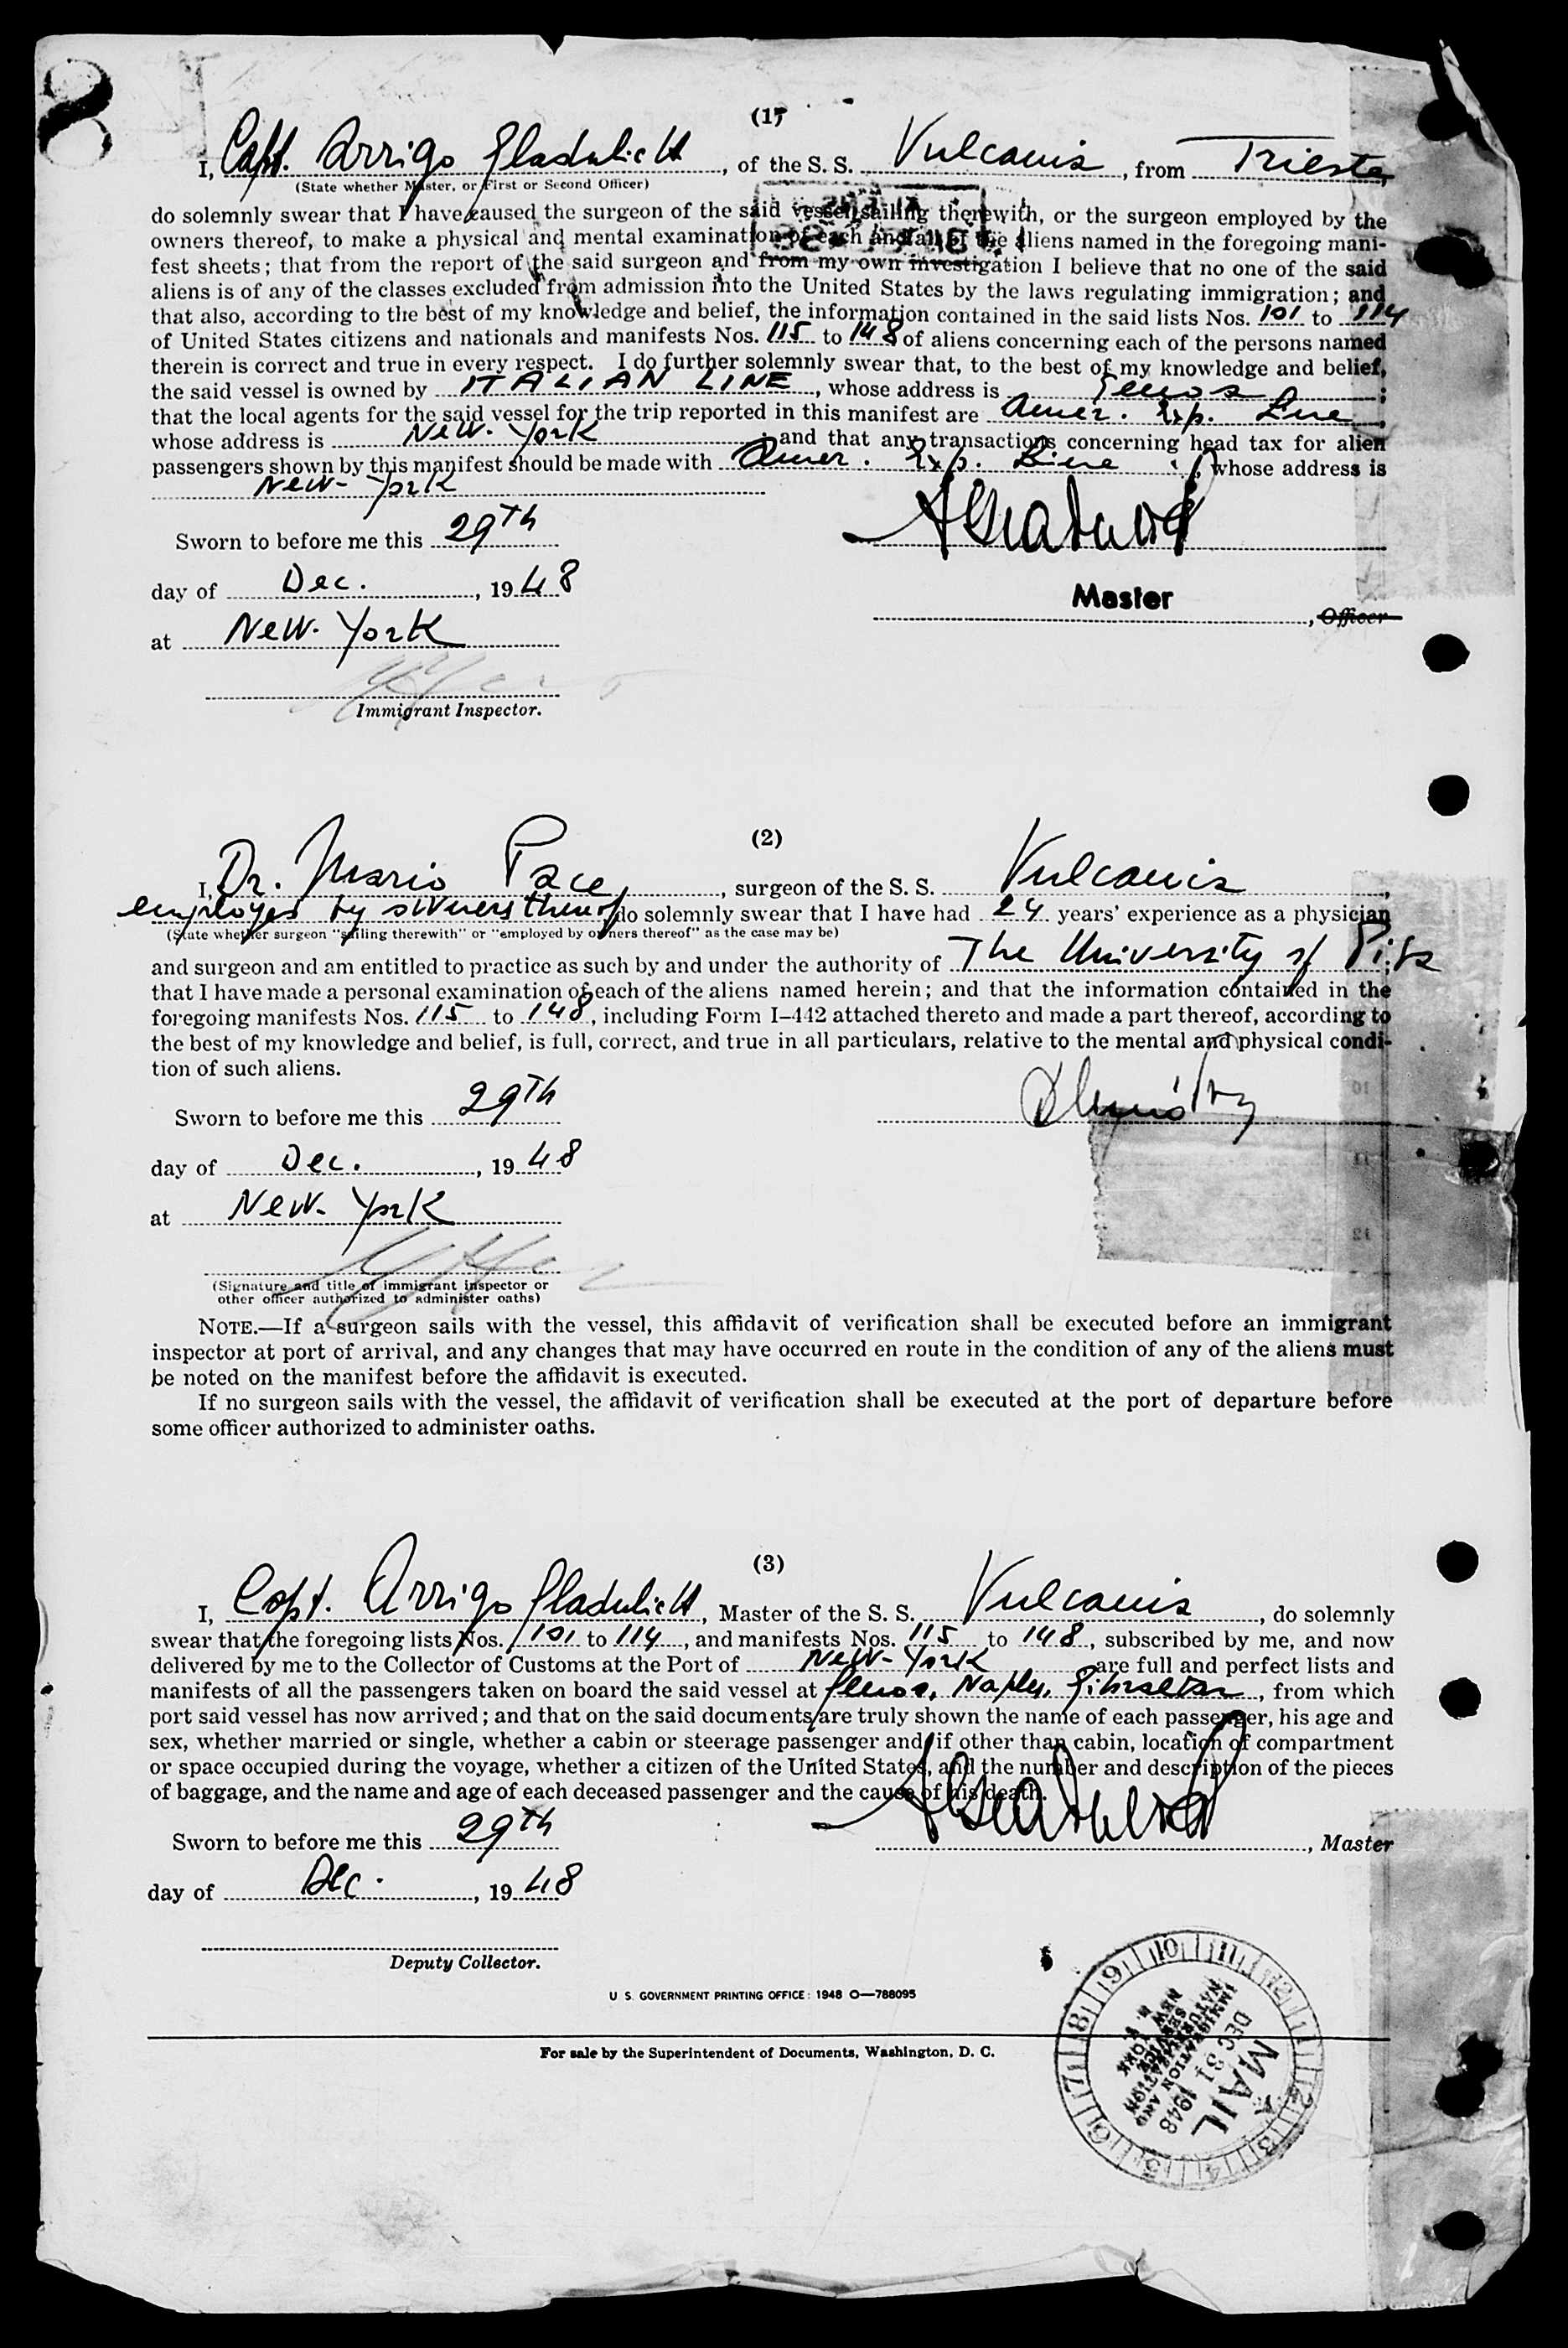 (1)
I, Capt. Arrigo Gladulich, of the S. S. Vulcania, from Trieste,
(State whether Master, or First or Second Officer)
do solemnly swear that I have caused the surgeon of the said vessel sailing therewith, or the surgeon employed by the
owners thereof, to make a physical and mental examination of each and all of the aliens named in the foregoing mani-
fest sheets; that from the report of the said surgeon and from my own investigation I believe that no one of the said
aliens is of any of the classes excluded from admission into the United States by the laws regulating immigration; and
that also, according to the best of my knowledge and belief, the information contained in the said lists Nos. 101 to 114
of United States citizens and nationals and manifests Nos. 115 to 148 of aliens concerning each of the persons named
therein is correct and true in every respect. I do further solemnly swear that, to the best of my knowledge and belief,
the said vessel is owned by ITALIAN LINE, whose address is Genoa;
that the local agents for the said vessel for the trip reported in this manifest are Amer. Exp. Line,
whose address is New-York; and that any transactions concerning head tax for alien
passengers shown by this manifest should be made with Amer. Exp. Line, whose address is
New-York
Sworn to before me this 29th
day of Dec., 1948
Master, Officer
at New-York
Immigrant Inspector.
(2)
I, Dr. Mario Pace, surgeon of the S. S. Vulcania,
employed by owners thereof, do solemnly swear that I have had 24 years' experience as a physician
(State whether surgeon "sailing therewith" or "employed by owners thereof" as the case may be)
and surgeon and am entitled to practice as such by and under the authority of The University of Pisa;
that I have made a personal examination of each of the aliens named herein; and that the information contained in the
foregoing manifests Nos. 115 to 148, including Form I–442 attached thereto and made a part thereof, according to
the best of my knowledge and belief, is full, correct, and true in all particulars, relative to the mental and physical condi-
tion of such aliens.
Sworn to before me this 29th
day of Dec., 1948
at New-York
(Signature and title of immigrant inspector or
other officer authorized to administer oaths)
NOTE.—If a surgeon sails with the vessel, this affidavit of verification shall be executed before an immigrant
inspector at port of arrival, and any changes that may have occurred en route in the condition of any of the aliens must
be noted on the manifest before the affidavit is executed.
If no surgeon sails with the vessel, the affidavit of verification shall be executed at the port of departure before
some officer authorized to administer oaths.
(3)
I, Capt. Arrigo Gladulich, Master of the S. S. Vulcania, do solemnly
swear that the foregoing lists Nos. 101 to 114, and manifests Nos. 115 to 148, subscribed by me, and now
delivered by me to the Collector of Customs at the Port of New-York are full and perfect lists and
manifests of all the passengers taken on board the said vessel at Genoa, Naples, Gibraltar, from which
port said vessel has now arrived; and that on the said documents are truly shown the name of each passenger, his age and
sex, whether married or single, whether a cabin or steerage passenger and, if other than cabin, location of compartment
or space occupied during the voyage, whether a citizen of the United States, and the number and description of the pieces
of baggage, and the name and age of each deceased passenger and the cause of his death.
Sworn to before me this 29th
, Master
day of Dec., 1948
Deputy Collector.
U. S. GOVERNMENT PRINTING OFFICE: 1948 O—788095
For sale by the Superintendent of Documents, Washington, D. C.
MAIL
DEC 31 1948
IMMIGRATION AND
NATURALIZATION
SERVICE
NEW YORK